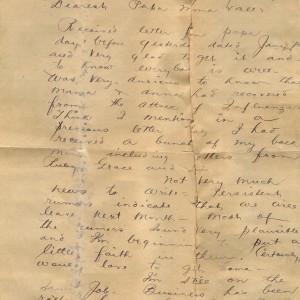 Dearest Papa Mama & all:
Received letter from papa
day before yesterday dated Jan 4
and very glad to get it and
to know everybody is well
Was very anxious to know that
mama & anna had recovered
from the attack of Influenza
Think I mention in a
previous letter I had
received a bunch of my back
mail including letters from
Ruby, Grace and
Not very much
news to write - Persistent
rumors indicate that we are
leave next month - Most of
the rumors sound very plausible
and I'm beginning put a
little faith in them. Certainly
would love to get
I'm still on the
same Job. Business has been